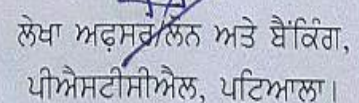 ਲੇਖਾ ਅਫ਼ਸਰ/ਲੋਨ ਅਤੇ ਬੈਂਕਿੰਗ,
ਪੀਐਸਟੀਸੀਐਲ, ਪਟਿਆਲਾ।